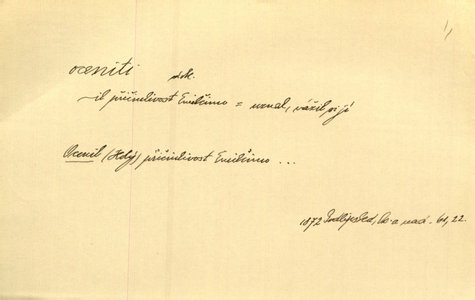 oceniti dok.
~il přičinlivost Emilčinu = uznal, vážil si jí
Ocenil (Holý) přičinlivost Emilčinu ...
1872 Podlipská, 61, 22.